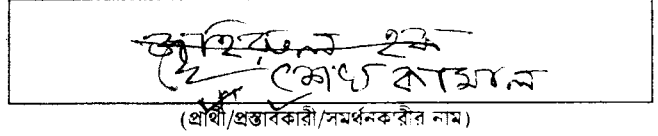 জহিরুল হক
শেখ কামাল
(প্রার্থী/প্রস্তাবকারী/সমর্থনকারীর নাম)